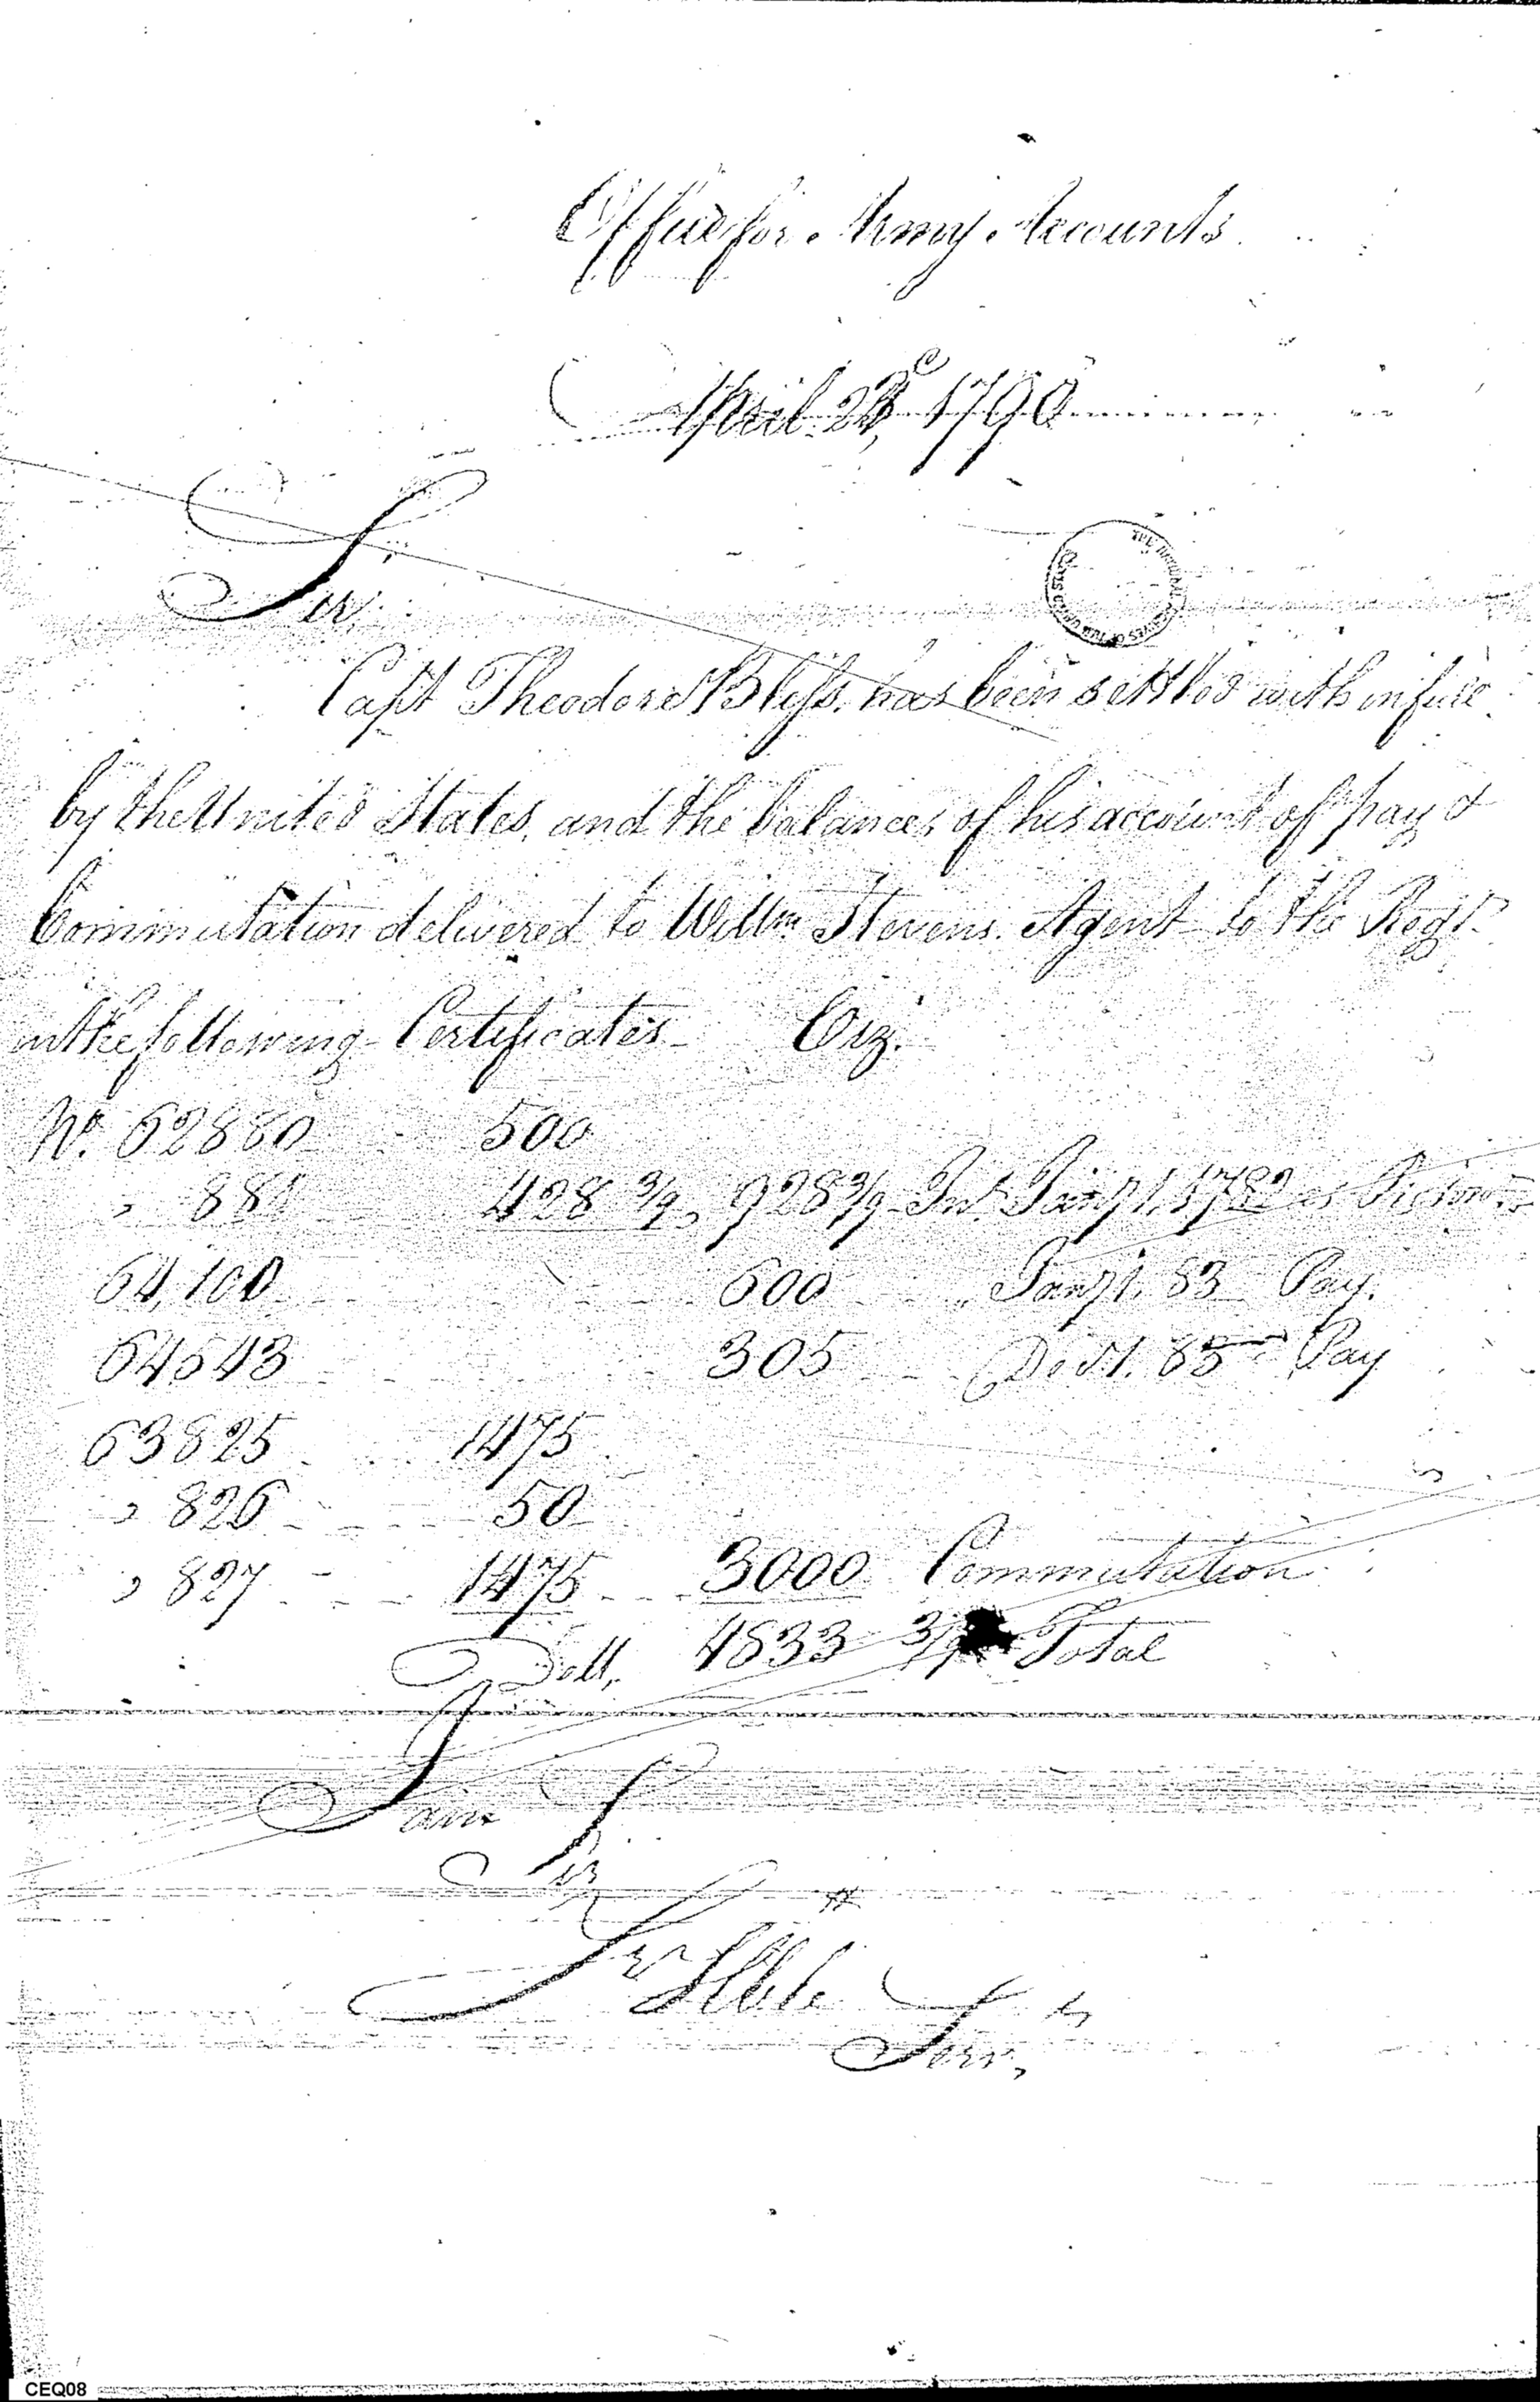 Office for Army Accounts
April 23, 1790
Sir
Capt Theodore Bliss, has been settled with in full
by the United States, and the balances of his account of pay &
Commutation delivered to Willm Stevens. Agent to the Regt
in the following Certificates Viz.
No. 62880 500
" 881 428 3/9 928 3/9 Int. Jany 1, 1782 as
64,100 600 Jany 1. 83 Pay.
64543 305 Do 1. 83 Pay
63825 1475
" 826 50
" 827 1475 3000 Commutation
Doll, 4833 3/9 Total
I am
Sir
Yr Hble
Servt,
CEQ08